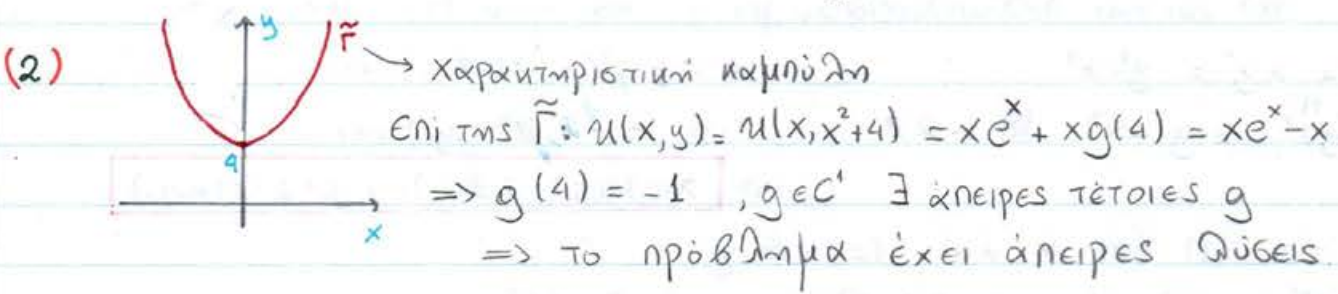 (2)
y
Γ̃ → χαρακτηριστική καμπύλη
επί της Γ̃: u(x,y) = u(x, x²+4) = xeˣ + xg(4) = xeˣ - x
4
=> g(4) = -1 , g ∈ C¹ ∃ άπειρες τέτοιες g
x
=> το πρόβλημα έχει άπειρες λύσεις.